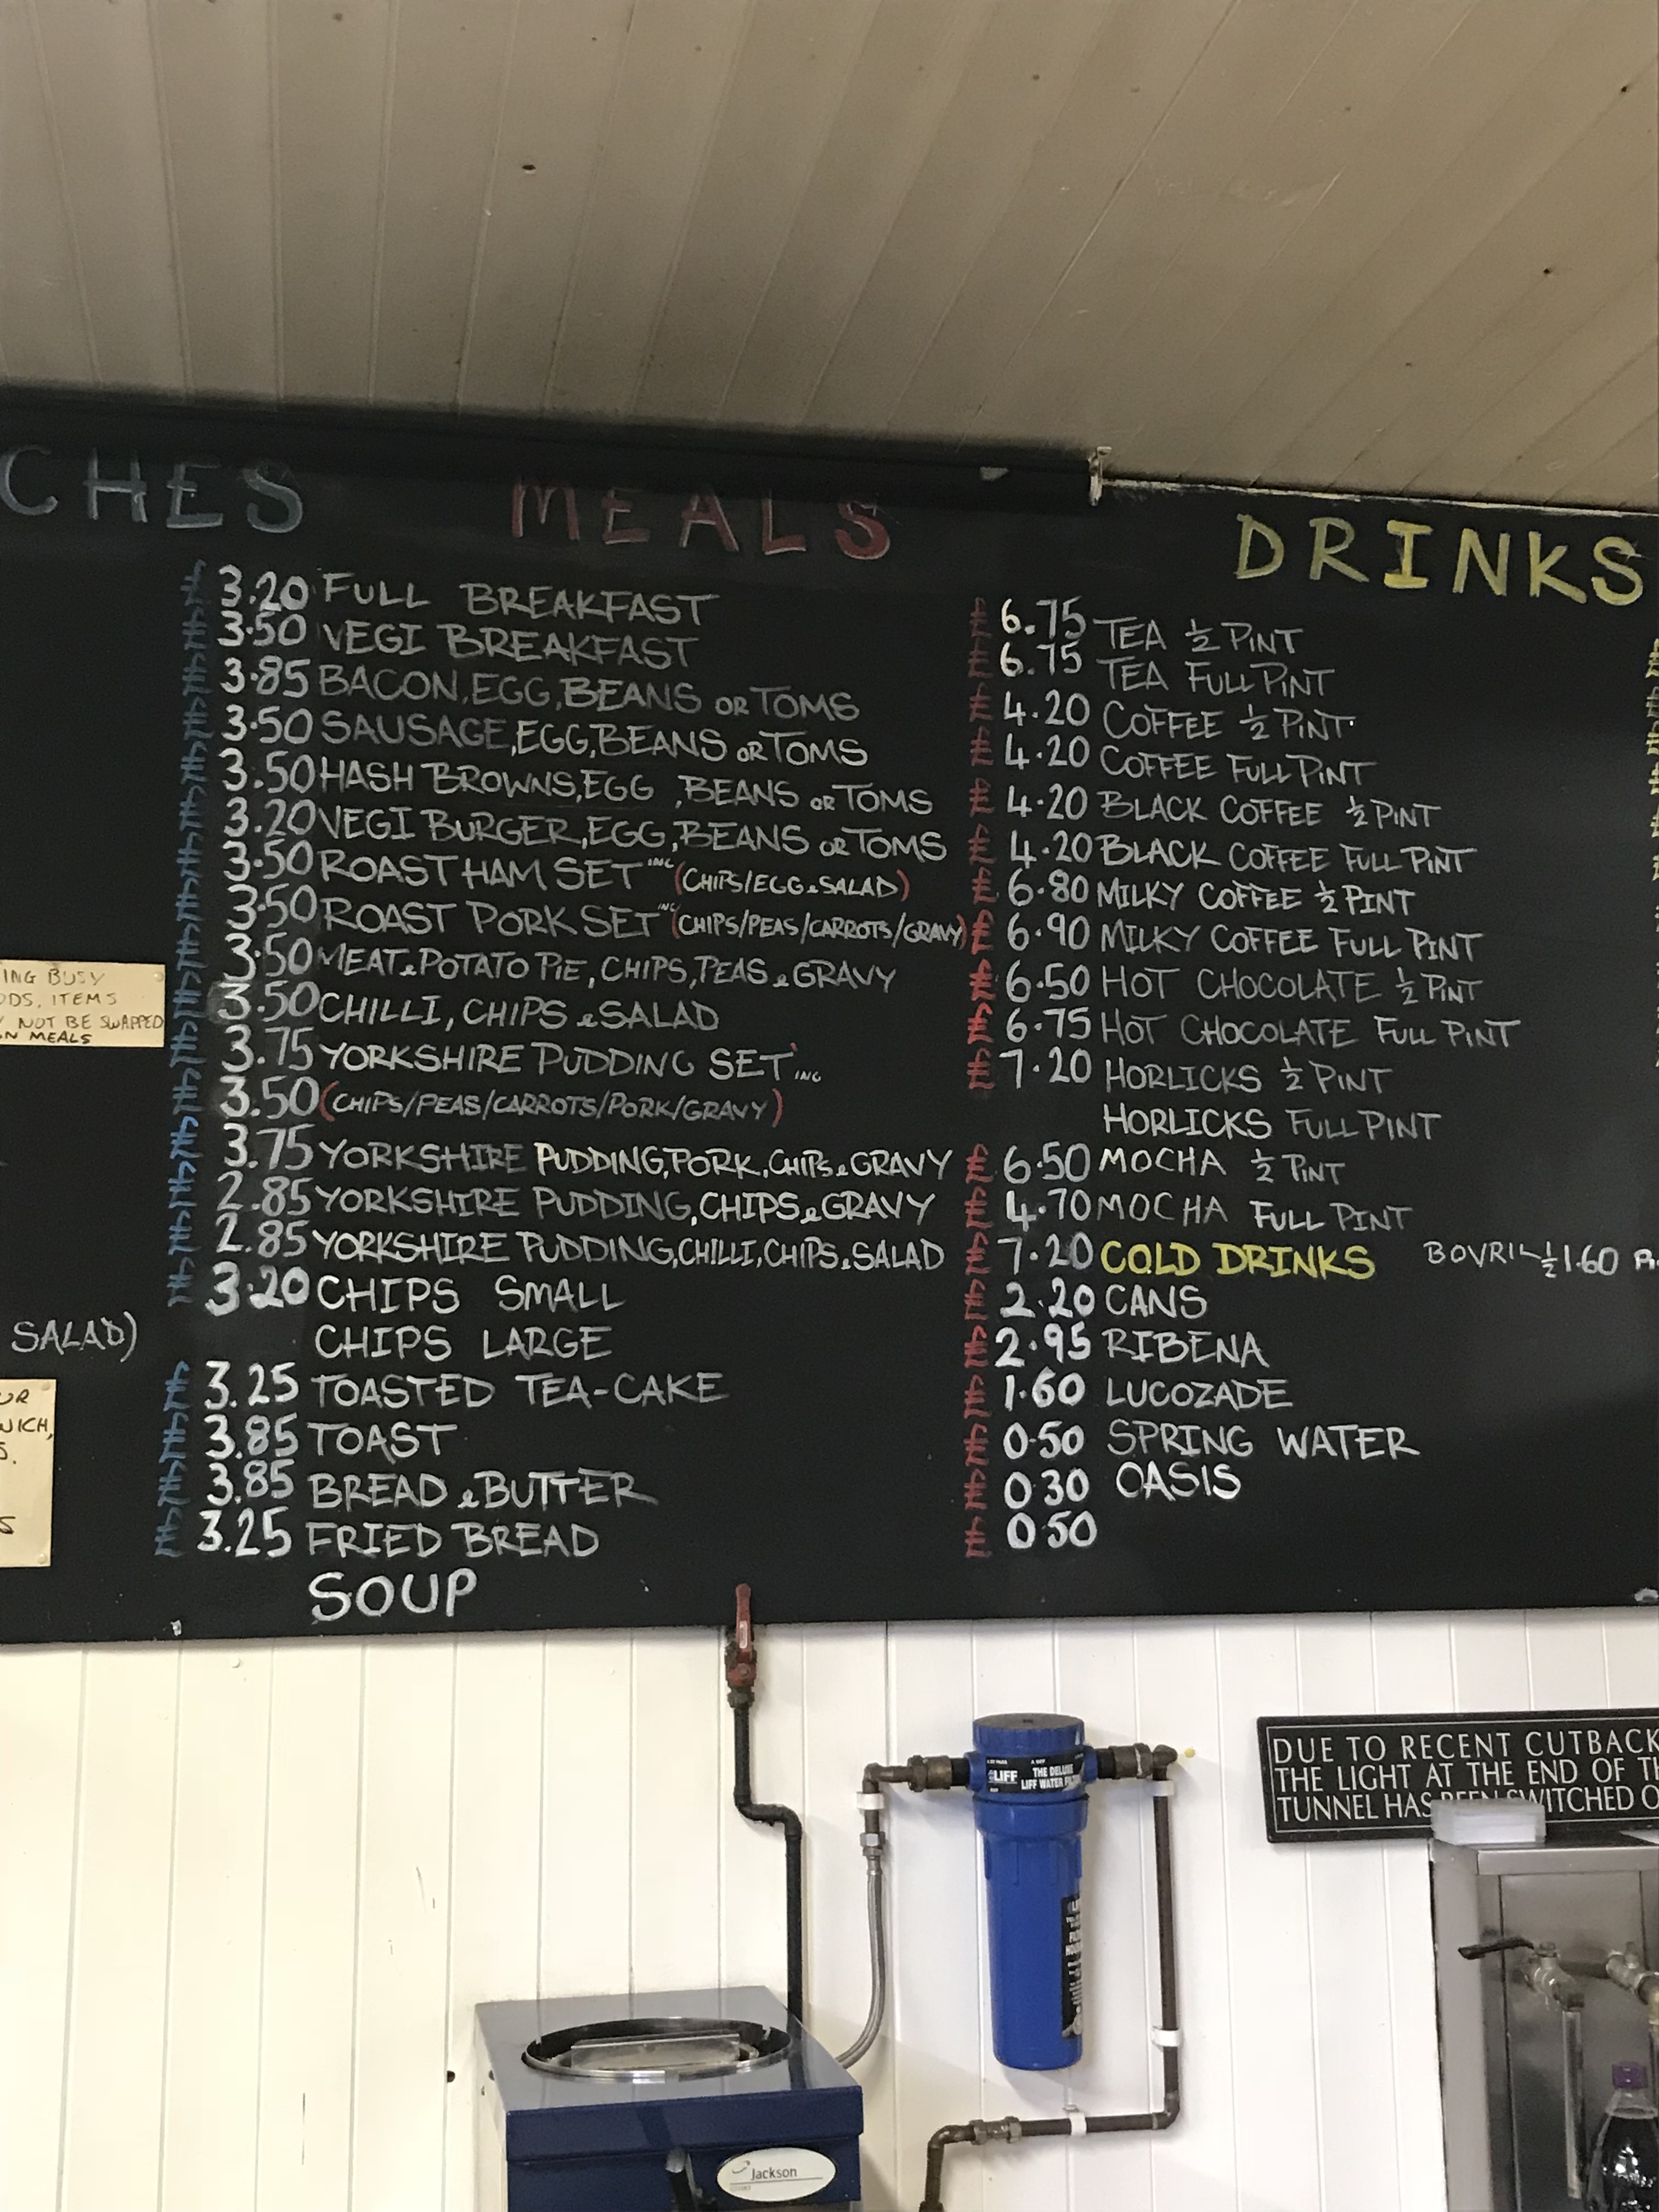 CHES
MEALS
DRINKS
£ 3.20 FULL BREAKFAST
£ 3.50 VEGI BREAKFAST
£ 3.85 BACON, EGG, BEANS OR TOMS
£ 3.50 SAUSAGE, EGG, BEANS OR TOMS
£ 3.50 HASH BROWNS, EGG, BEANS OR TOMS
£ 3.20 VEGI BURGER, EGG, BEANS OR TOMS
£ 3.50 ROAST HAM SET INC (CHIPS/EGG & SALAD)
£ 3.50 ROAST PORK SET INC (CHIPS/PEAS/CARROTS/GRAVY)
£ 3.50 MEAT & POTATO PIE, CHIPS, PEAS & GRAVY
£ 3.50 CHILLI, CHIPS & SALAD
£ 3.75 YORKSHIRE PUDDING SET INC
£ 3.50 (CHIPS/PEAS/CARROTS/PORK/GRAVY)
£ 3.75 YORKSHIRE PUDDING, PORK, CHIPS & GRAVY
£ 2.85 YORKSHIRE PUDDING, CHIPS & GRAVY
£ 2.85 YORKSHIRE PUDDING, CHILLI, CHIPS & SALAD
£ 3.20 CHIPS SMALL
CHIPS LARGE
£ 3.25 TOASTED TEA-CAKE
£ 3.85 TOAST
£ 3.85 BREAD & BUTTER
£ 3.25 FRIED BREAD
SOUP
£ 6.75 TEA ½ PINT
£ 6.75 TEA FULL PINT
£ 4.20 COFFEE ½ PINT
£ 4.20 COFFEE FULL PINT
£ 4.20 BLACK COFFEE ½ PINT
£ 4.20 BLACK COFFEE FULL PINT
£ 6.80 MILKY COFFEE ½ PINT
£ 6.90 MILKY COFFEE FULL PINT
£ 6.50 HOT CHOCOLATE ½ PINT
£ 6.75 HOT CHOCOLATE FULL PINT
£ 7.20 HORLICKS ½ PINT
HORLICKS FULL PINT
£ 6.50 MOCHA ½ PINT
£ 4.70 MOCHA FULL PINT
£ 7.20 COLD DRINKS BOVRIL ½ 1.60
£ 2.20 CANS
£ 2.95 RIBENA
£ 1.60 LUCOZADE
£ 0.50 SPRING WATER
£ 0.30 OASIS
£ 0.50
ING BUSY
ODS, ITEMS
NOT BE SWAPPED
N MEALS
SALAD)
UR
WICH,
S.
S
LIFF
THE DELUXE
LIFF WATER
DUE TO RECENT CUTBACK
THE LIGHT AT THE END OF TH
TUNNEL HAS BEEN SWITCHED O
Jackson